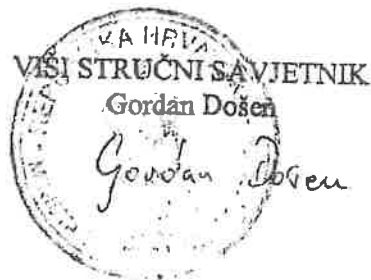 VIŠI STRUČNI SAVJETNIK
Gordan Došen
Gordan Došen